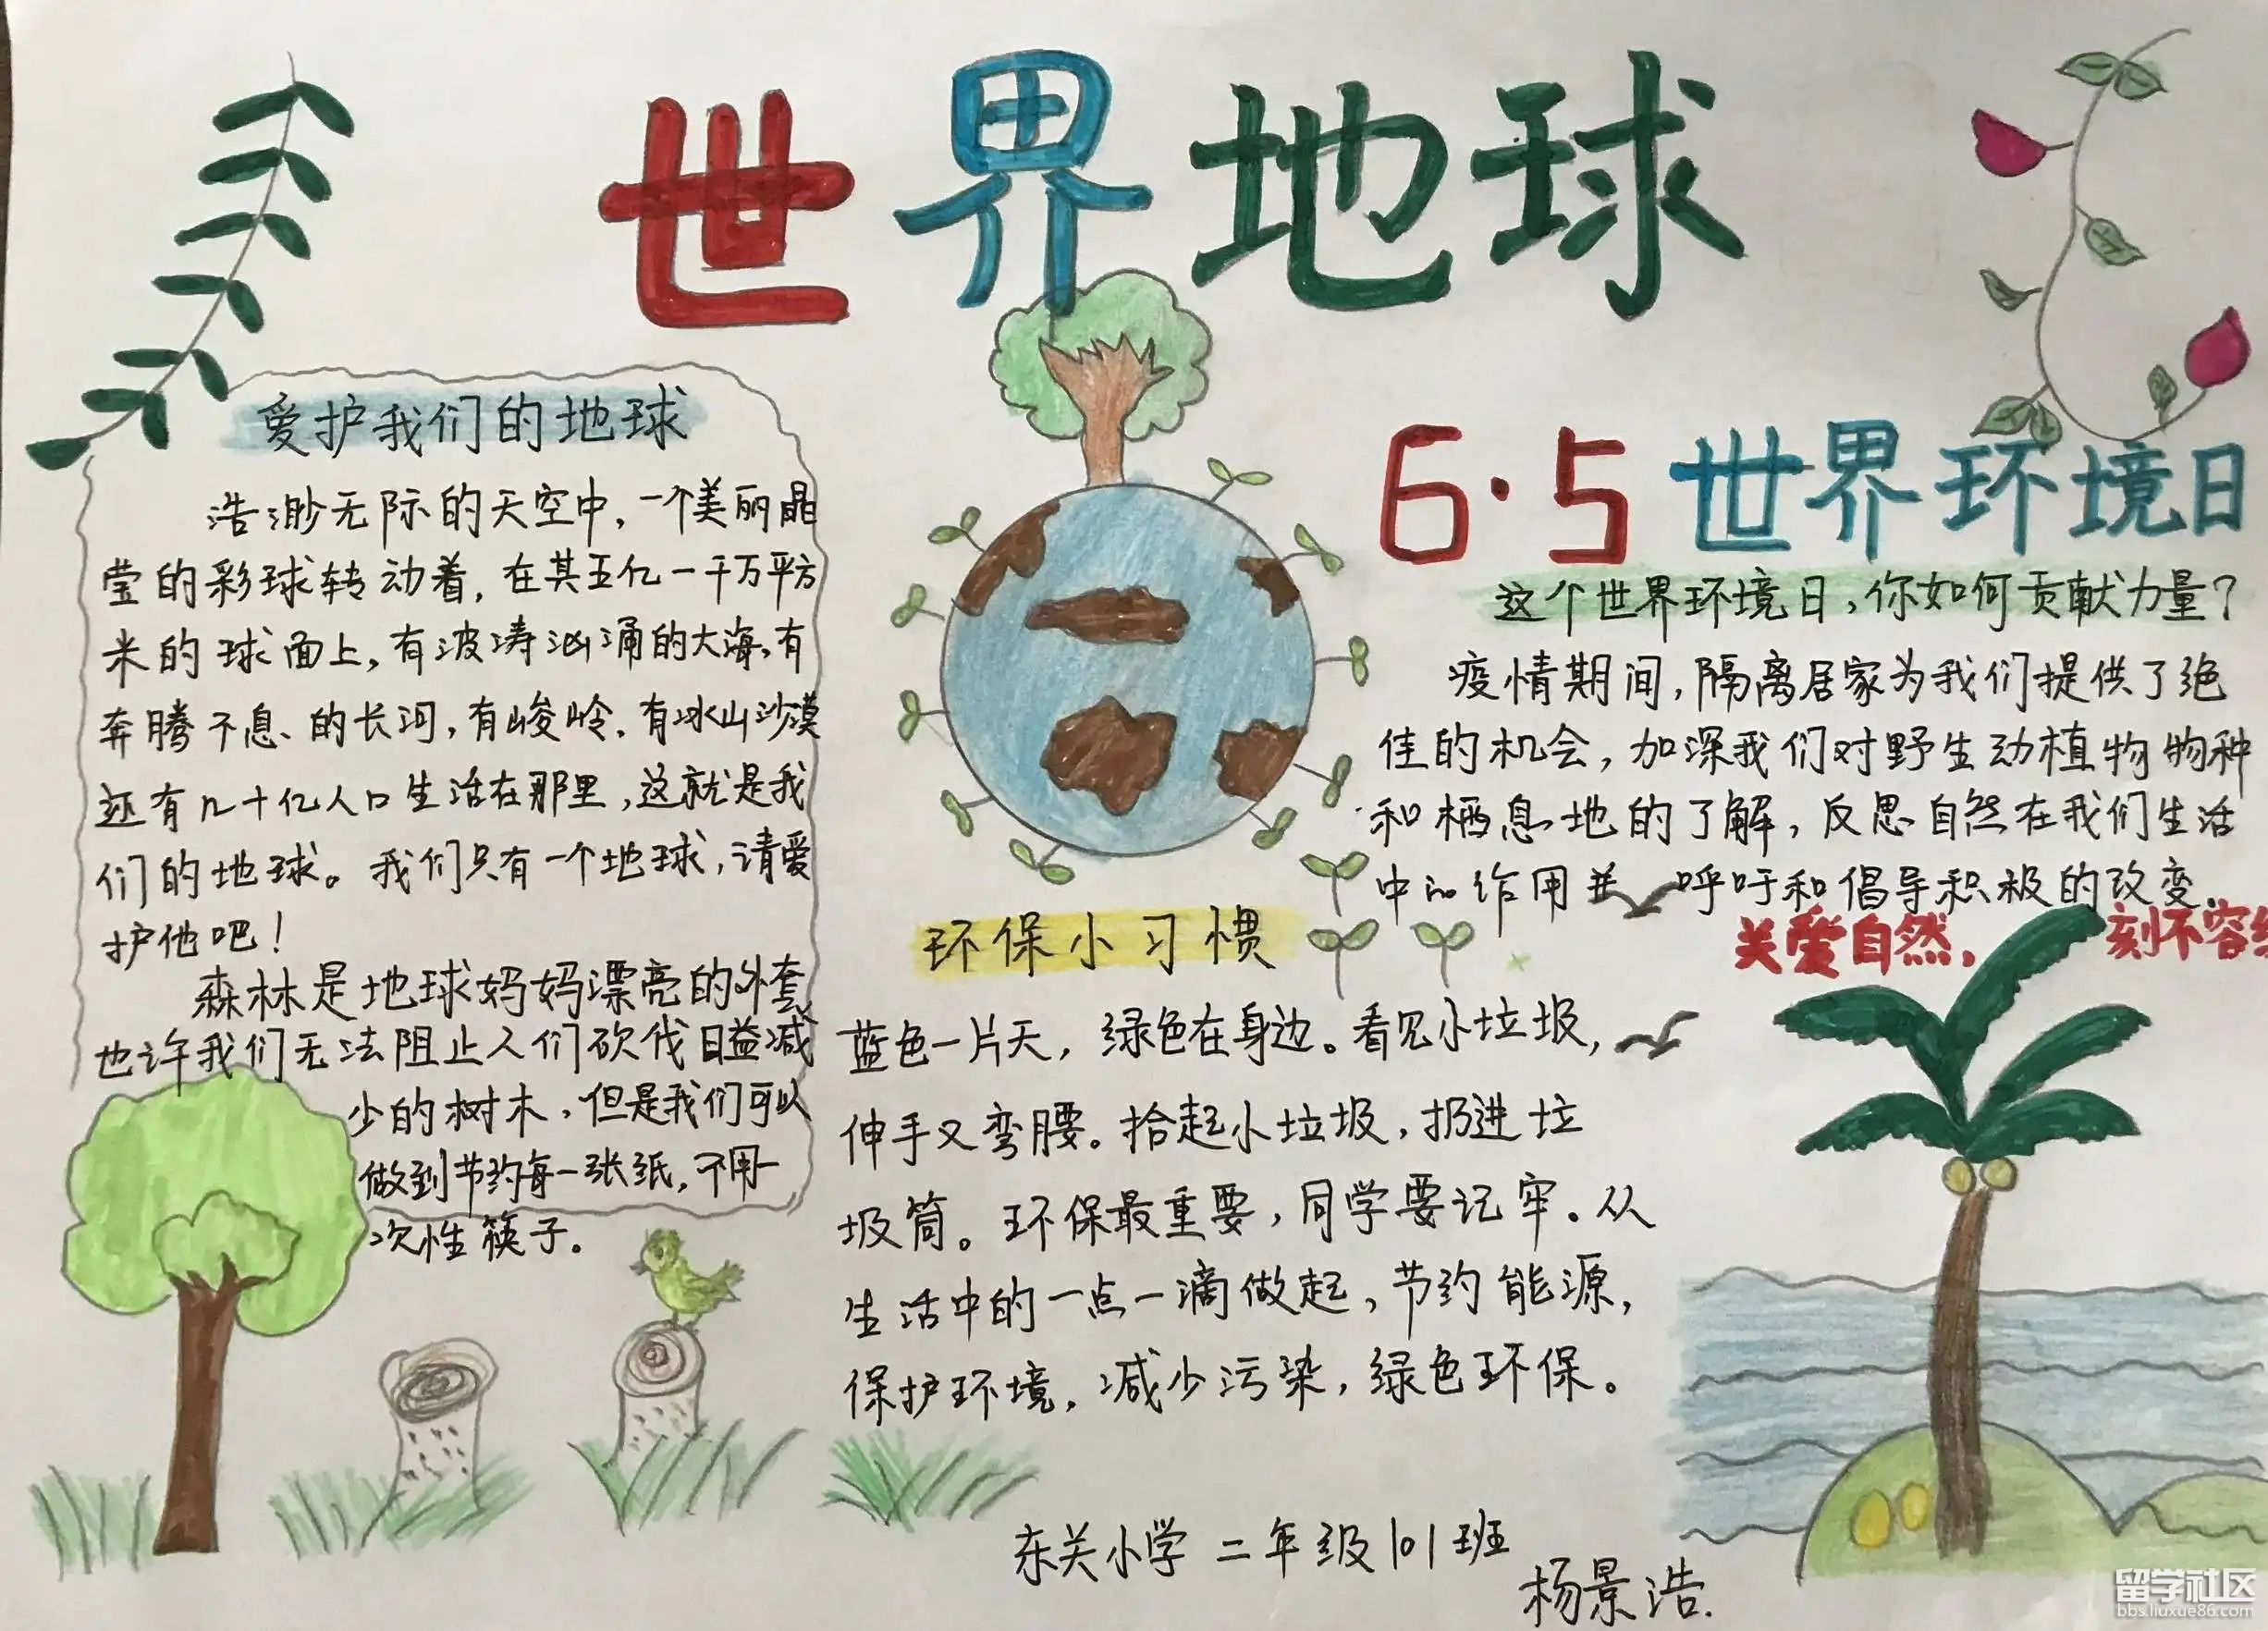 世界地球
爱护我们的地球
浩渺无际的天空中，一个美丽晶
莹的彩球转动着，在其五亿一千万平方
米的球面上，有波涛汹涌的大海，有
奔腾不息的长河，有峻岭，有冰山沙漠
还有几十亿人口生活在那里，这就是我
们的地球。我们只有一个地球，请爱
护他吧！
森林是地球妈妈漂亮的外套，
也许我们无法阻止人们砍伐日益减
少的树木，但是我们可以
做到节约每一张纸，不用一
次性筷子。
6·5世界环境日
这个世界环境日，你如何贡献力量？
疫情期间，隔离居家为我们提供了绝
佳的机会，加深我们对野生动植物物种
和栖息地的了解，反思自然在我们生活
中的作用并呼吁和倡导积极的改变.
关爱自然，刻不容缓
环保小习惯
蓝色一片天，绿色在身边。看见小垃圾，
伸手又弯腰。拾起小垃圾，扔进垃
圾筒。环保最重要，同学要记牢。从
生活中的一点一滴做起，节约能源，
保护环境，减少污染，绿色环保。
东关小学 二年级101班
杨景浩.
留学社区
bbs.liuxue86.com